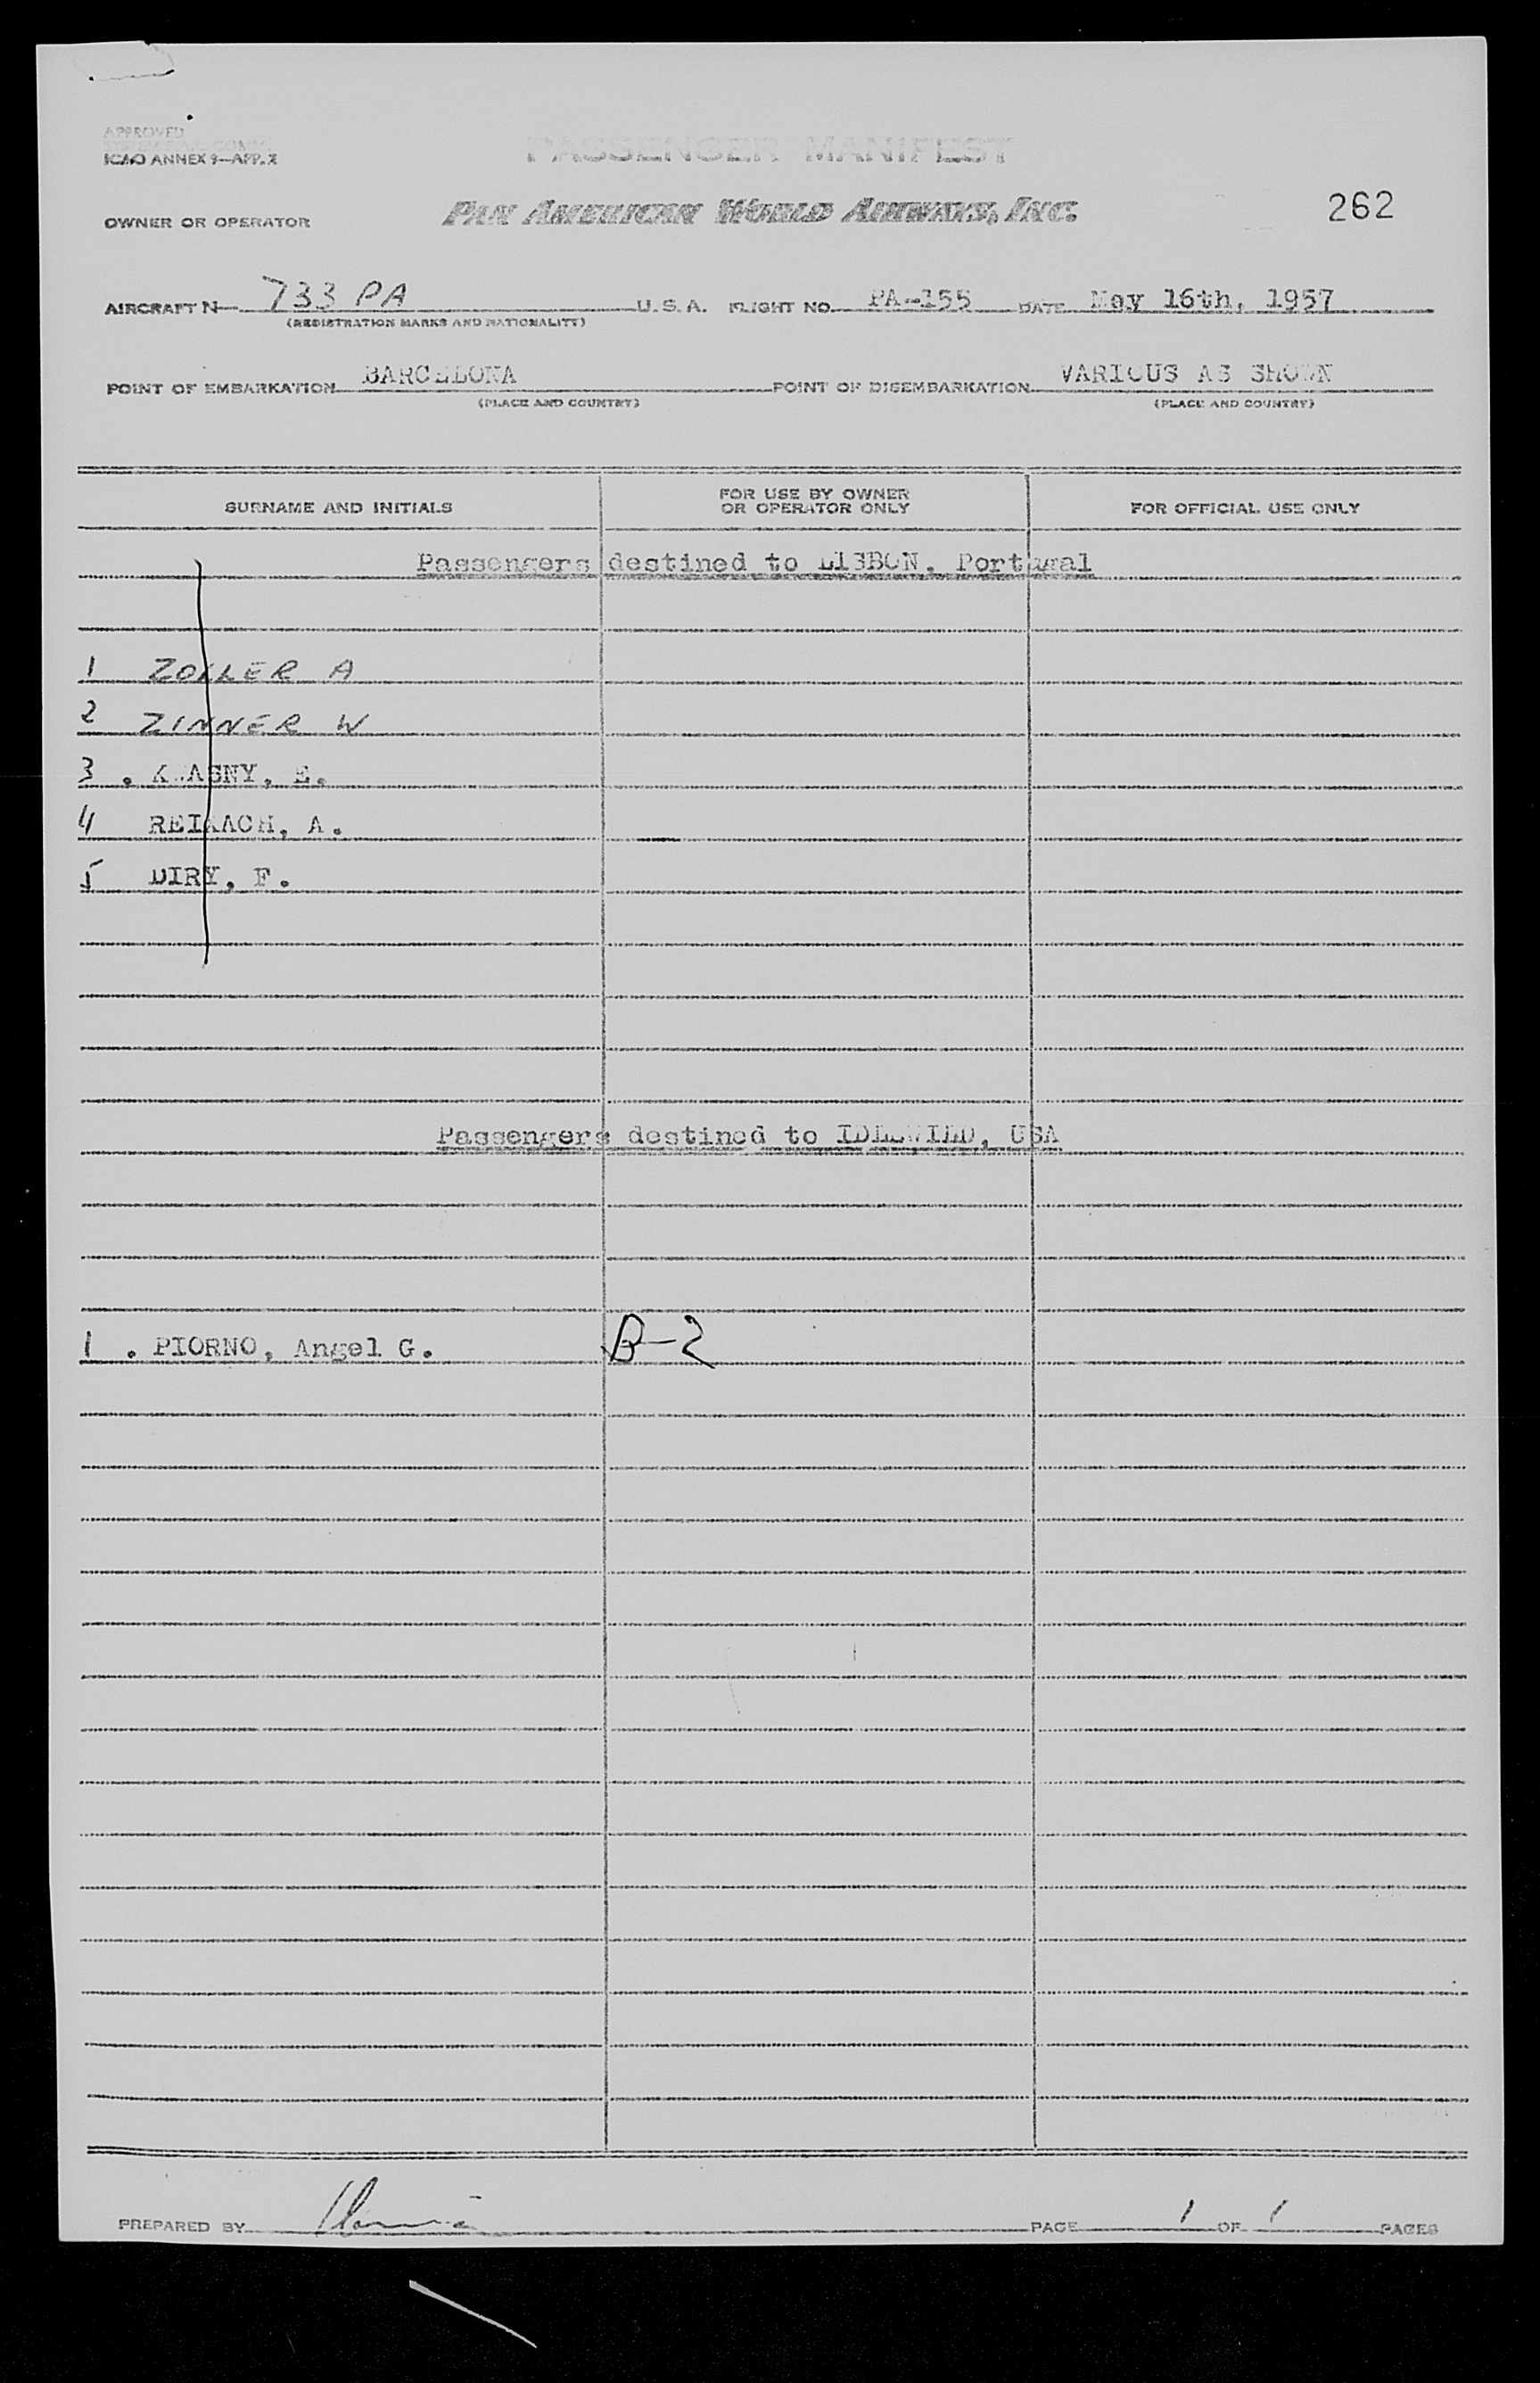 APPROVED
ICAO ANNEX 9—APP. X
PASSENGER MANIFEST
OWNER OR OPERATOR PAN AMERICAN WORLD AIRWAYS, INC. 262
AIRCRAFT N— 733 PA U. S. A. FLIGHT NO. PA-155 DATE May 16th, 1957
(REGISTRATION MARKS AND NATIONALITY)
POINT OF EMBARKATION BARCELONA POINT OF DISEMBARKATION VARIOUS AS SHOWN
(PLACE AND COUNTRY) (PLACE AND COUNTRY)
SURNAME AND INITIALS FOR USE BY OWNER OR OPERATOR ONLY FOR OFFICIAL USE ONLY
Passengers destined to LISBON, Portugal
1 ZOLLER A
2 ZINNER W
3 . E.
4 A.
5 DIRY, F.
Passengers destined to IDLEWILD, USA
1 . PIORNO, Angel G. B-2
PREPARED BY PAGE 1 OF 1 PAGES